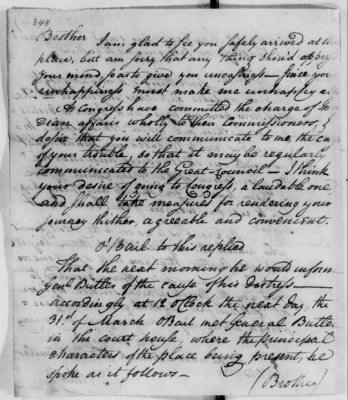 348
Brother
I am glad to see you safely arrived at
place, but am sorry that any thing shou'd
Your mind, so as to give you uneasiness — since you
unhappiness must make me unhappy
As Congress have committed the charge of
dian affairs wholly to their Commissioners,
desire that you will communicate to me the ca
of your trouble, so that it may be regularly
communicated to the Great-Council — I think
your desire of going to Congress, a laudable one
and shall take measures for rendering your
journey thither, agreeable and convenient.
O'Bail to this replied
That the next morning he would inform
Genl Butler of the cause of his distress —
accordingly at 12 o'Clock the next day the
31st of March O'Bail met General Butler
in the court house, where the principal
characters of the place being present, he
spoke as it follows —
(Brother)